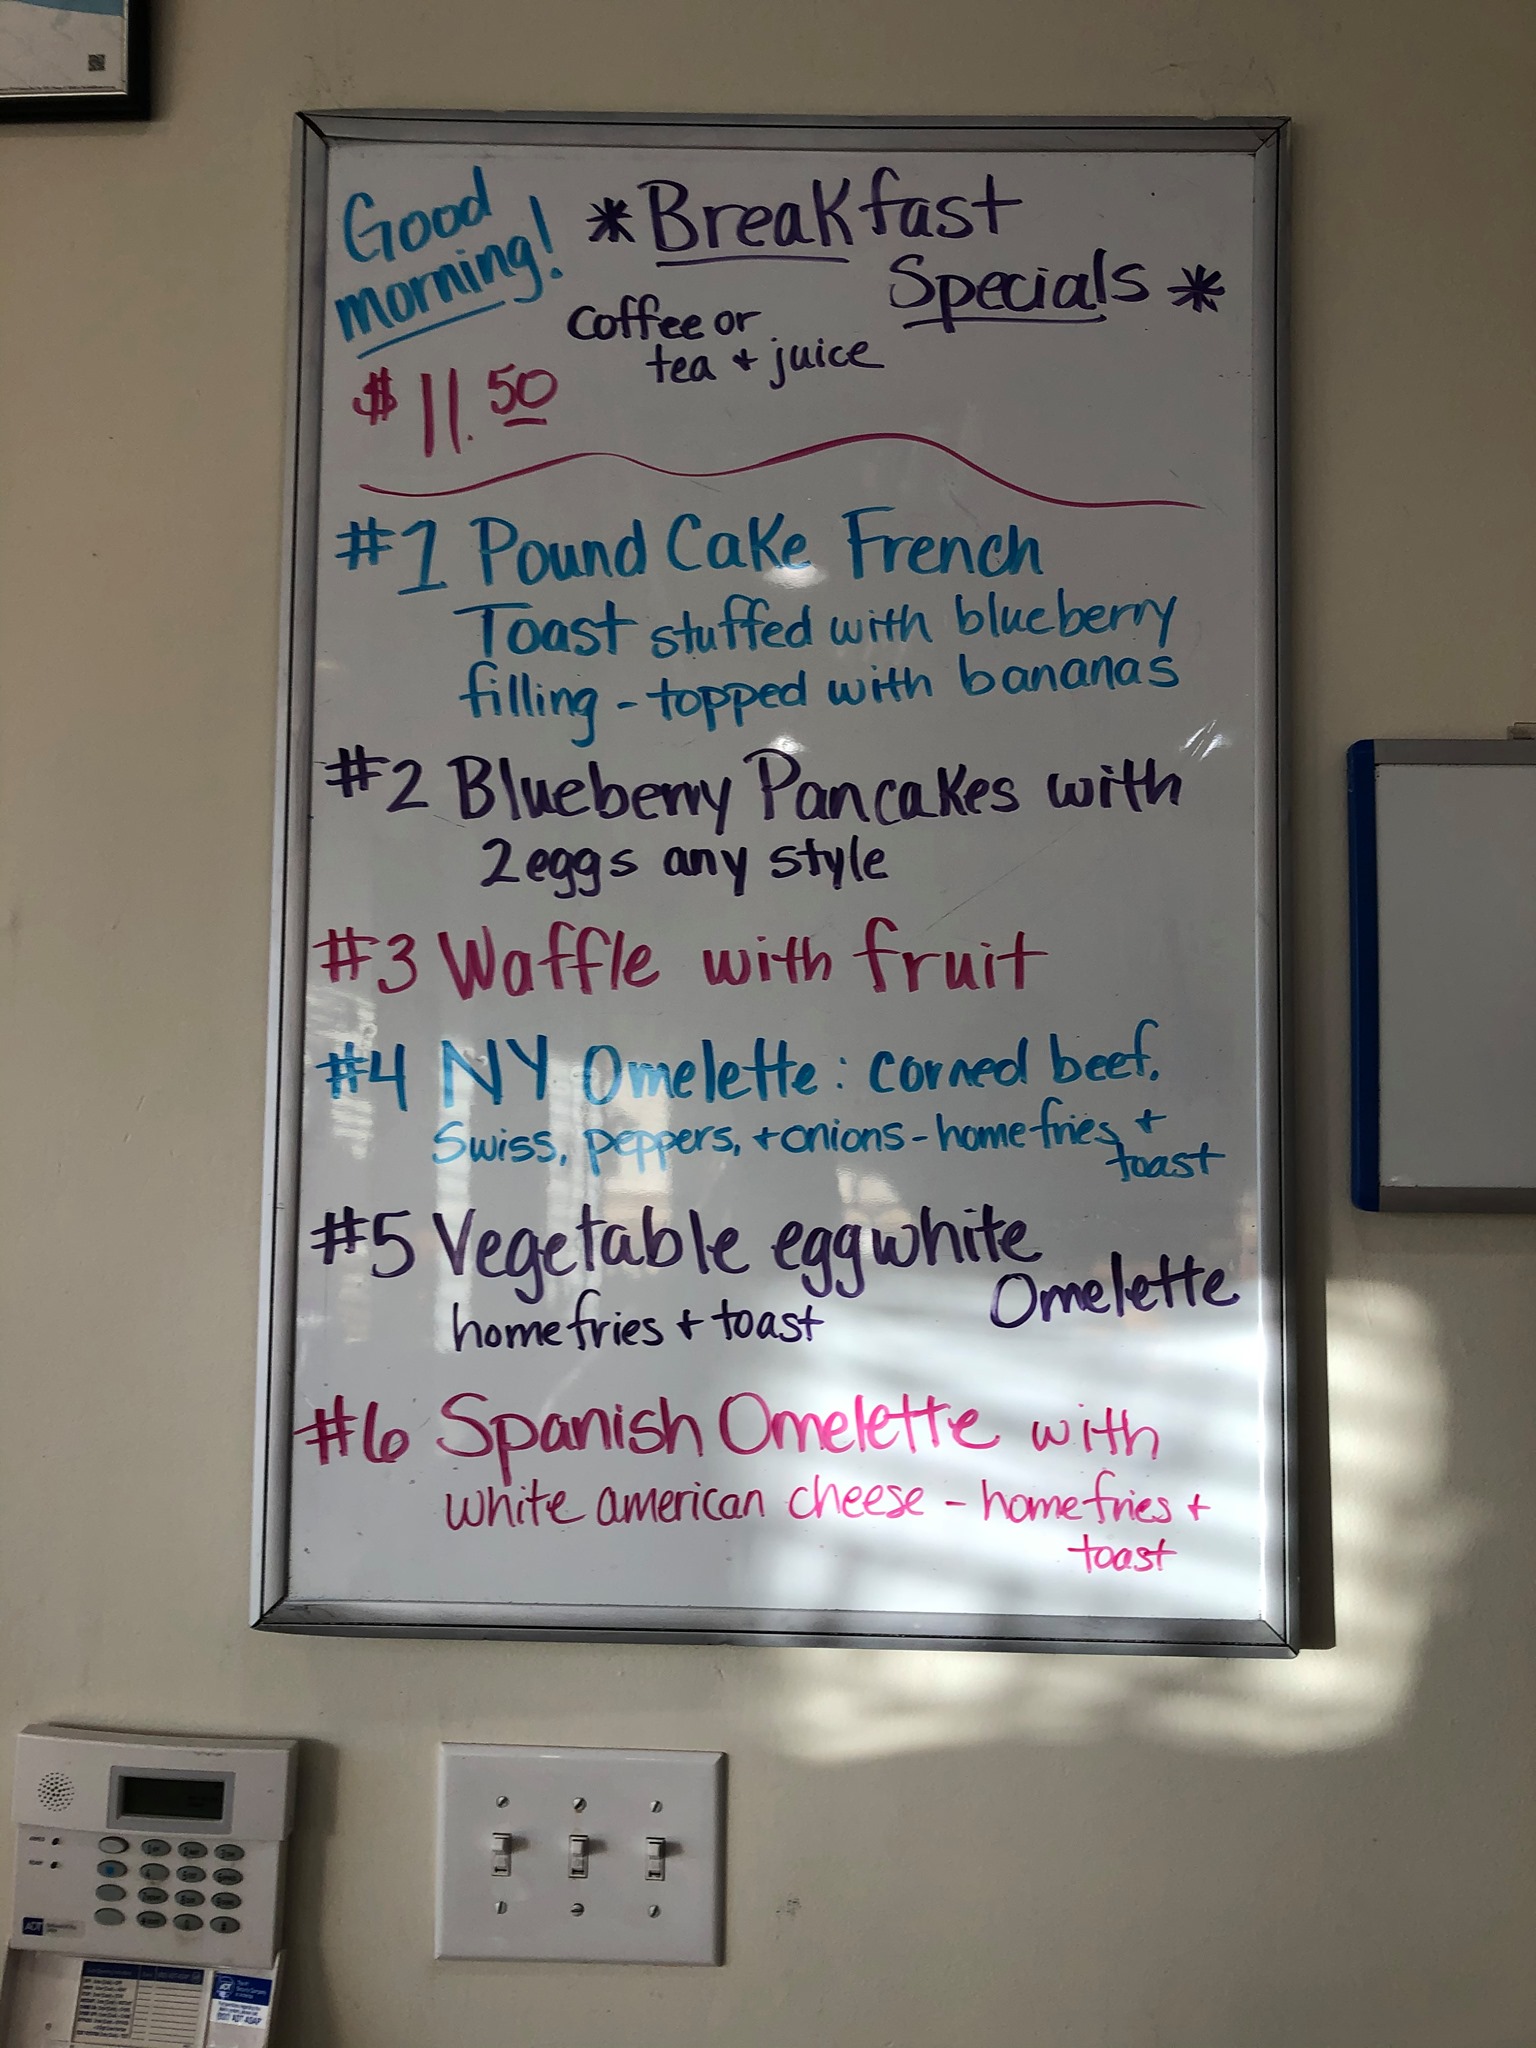 Good
morning!
*Breakfast
Specials*
Coffee or
tea + juice
$11.50
#1 Pound Cake French
Toast stuffed with blueberry
filling - topped with bananas
#2 Blueberry Pancakes with
2 eggs any style
#3 Waffle with fruit
#4 NY Omelette: corned beef,
Swiss, peppers, + onions - homefries +
toast
#5 Vegetable eggwhite
Omelette
homefries + toast
#6 Spanish Omelette with
white american cheese - homefries +
toast
ADT